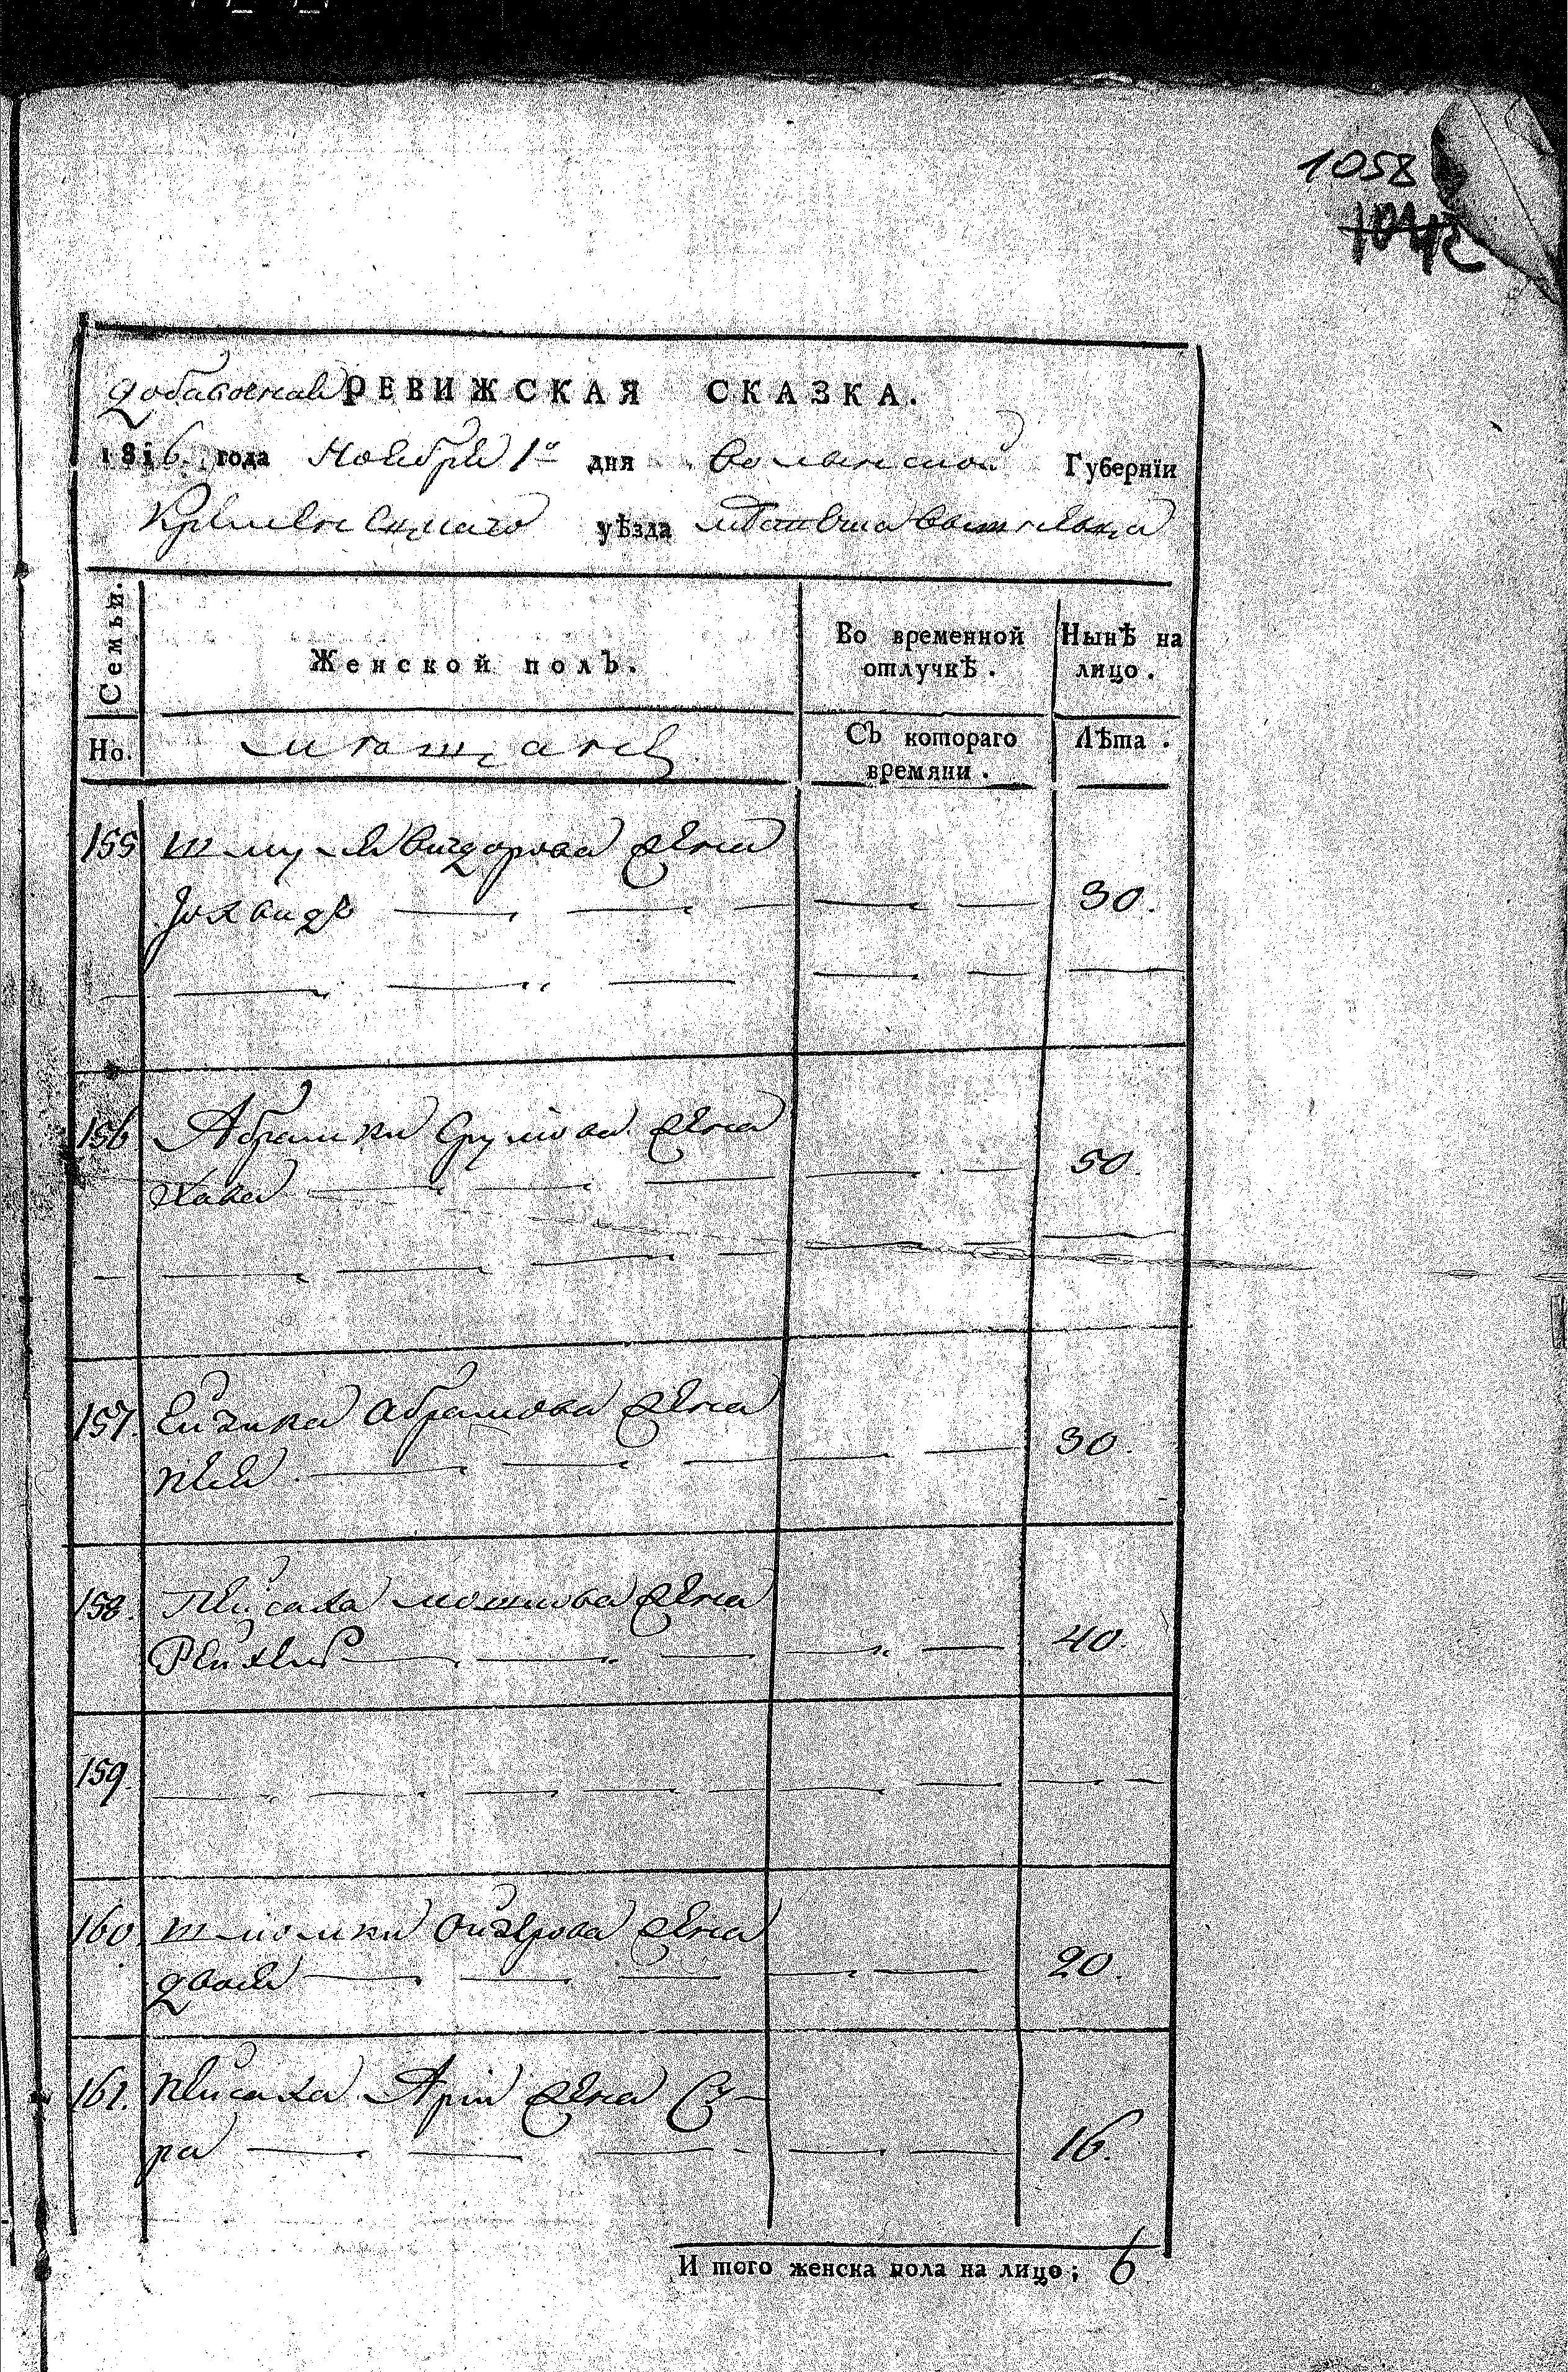 1058
1042
добавочная РЕВИЖСКАЯ СКАЗКА.
1816. года Ноября 1го дня Волынской Губернїи
Кременецкаго уѣзда местечка Вышгевка
Семьи. Женской полъ. Во временной отлучкѣ. Нынѣ на лицо.
Но. мещане Съ котораго времяни. Лѣта.
155 Шмуля Вигдорова жена
Йохвидъ 30.
156 Абрамки Срулiова жена
Хава 50.
157. Ейзика Абрамова жена
Пея 30.
158. Пейсаха Мошкова жена
Рейхля 40.
159.
160 Шлиомки Ойзерова жена
Двося 20.
161. Пейсаха Арiи жена Су-
ра 16.
И того женска пола на лицо; 6